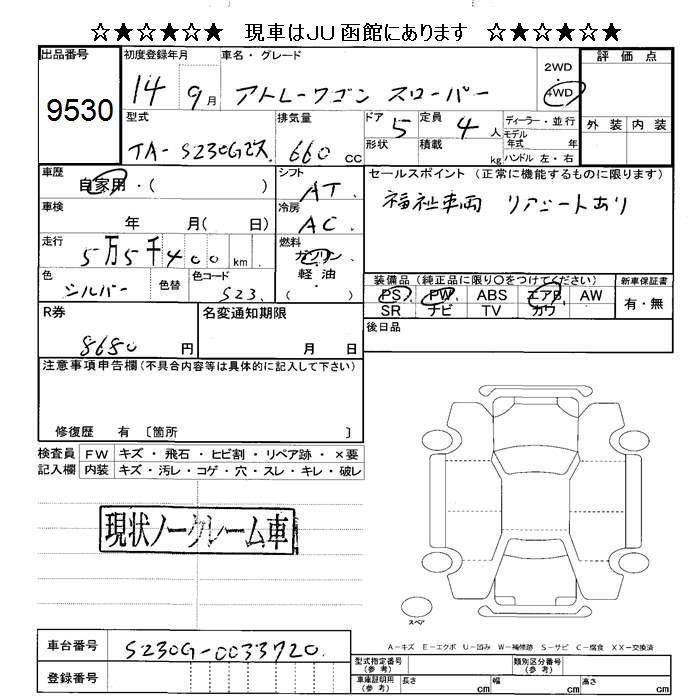 ☆★☆★☆★ 現車はJU函館にあります ☆★☆★☆★
出品番号 初度登録年月 車名・グレード 評価点
9530 14 9月 アトレーワゴン スローパー 2WD 4WD
型式 排気量 ドア 定員 ディーラー・並行 外装 内装
TA-S230G 660 CC 5 4人 モデル年式 年
形状 積載 kg ハンドル 左・右
車歴 シフト セールスポイント (正常に機能するものに限ります)
自家用・( ) AT 福祉車両 リアシートあり
車検 年 月( 日) 冷房 AC
走行 5万5千400km 燃料 ガソリン 軽油 ( )
色 シルバー 色替 色コード S23 装備品(純正品に限り○をつけてください) 新車保証書
PS PW ABS エアB AW 有・無
SR ナビ TV カワ
R券 8680円 名変通知期限 月 日 後日品
注意事項申告欄(不具合内容等は具体的に記入して下さい)
修復歴 有 〔箇所 〕
検査員 FW キズ・飛石・ヒビ割・リペア跡・×要
記入欄 内装 キズ・汚レ・コゲ・穴・スレ・キレ・破レ
現状ノークレーム車
スペア
車台番号 S230G-0033720
A-キズ E-エクボ U-凹み W-補修跡 S-サビ C-腐食 XX-交換済
登録番号 型式指定番号(参考) 類別区分番号(参考)
車庫証明用(参考) 長さ cm 幅 cm 高さ cm